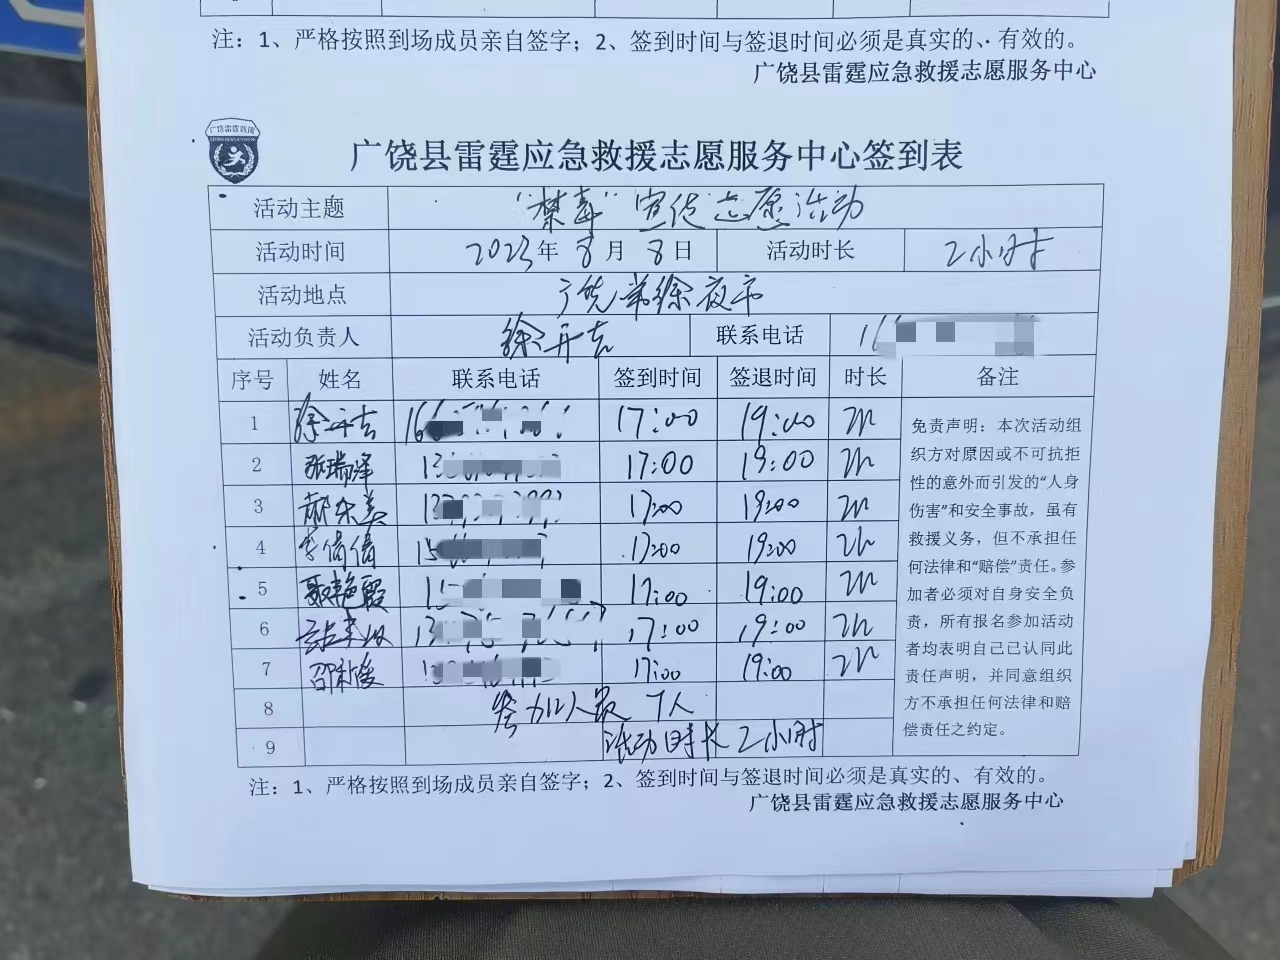 注：1、严格按照到场成员亲自签字；2、签到时间与签退时间必须是真实的、有效的。
广饶县雷霆应急救援志愿服务中心
广饶雷霆救援
广饶县雷霆应急救援志愿服务中心签到表
活动主题 “禁毒”宣传志愿活动
活动时间 2023年8月8日 活动时长 2小时
活动地点 广饶常徐夜市
活动负责人 徐开吉 联系电话 16
序号 姓名 联系电话 签到时间 签退时间 时长 备注
1 徐开吉 166 17:00 19:00 2h
2 张瑞泽 13 17:00 19:00 2h
3 17:00 19:00 2h
4 李倩倩 15 17:00 19:00 2h
5 聂艳霞 17:00 19:00 2h
6 13 17:00 19:00 2h
7 邵新爱 17:00 19:00 2h
8 参加人员 7人
9 活动时长 2小时
免责声明：本次活动组
织方对原因或不可抗拒
性的意外而引发的“人身
伤害”和安全事故，虽有
救援义务，但不承担任
何法律和“赔偿”责任。参
加者必须对自身安全负
责，所有报名参加活动
者均表明自己已认同此
责任声明，并同意组织
方不承担任何法律和赔
偿责任之约定。
注：1、严格按照到场成员亲自签字；2、签到时间与签退时间必须是真实的、有效的。
广饶县雷霆应急救援志愿服务中心